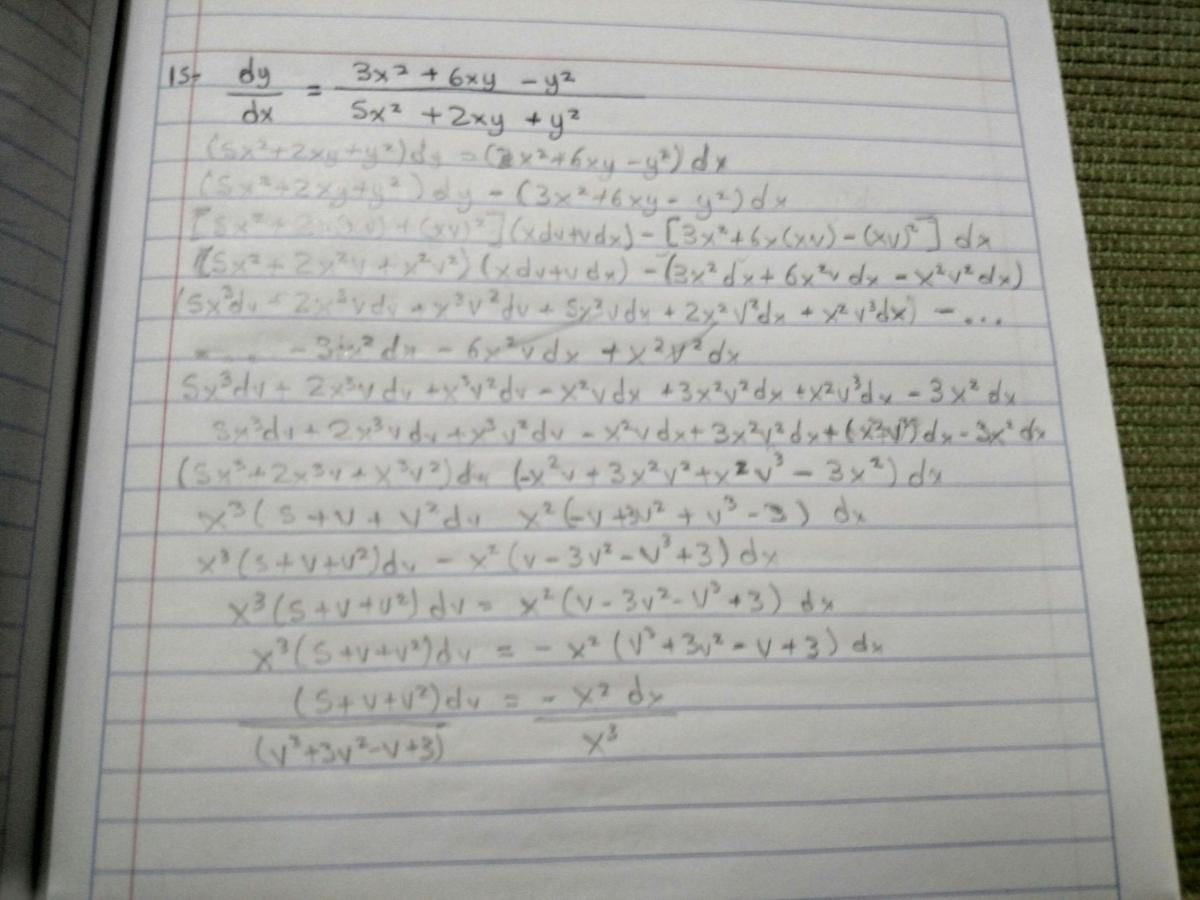 15- dy/dx = (3x² + 6xy - y²)/(5x² + 2xy + y²)
(5x²+2xy+y²)dy = (3x²+6xy-y²)dx
(5x²+2xy+y²)dy - (3x²+6xy-y²)dx
[5x²+2x(xv)+(xv)²](xdv+vdx)-[3x²+6x(xv)-(xv)²] dx
(5x²+2x²v+x²v²)(xdv+vdx)-(3x²dx+6x²vdx-x²v²dx)
(5x³dv+2x³vdv+x³v²dv+5x²vdx+2x²v²dx+x²v³dx) - ...
.... -3x²dx - 6x²vdx + x²v²dx
5x³dv+2x³vdv+x³v²dv-x²vdx+3x²v²dx+x²v³dx-3x²dx
5x³dv+2x³vdv+x³v²dv-x²vdx+3x²v²dx+(x²v³)dx-3x²dx
(5x³+2x³v+x³v²)dv (-x²v+3x²v²+x²v³-3x²)dx
x³(5+v+v²dv x²(-v+3v²+v³-3) dx
x³(5+v+v²)dv - x²(v-3v²-v³+3)dx
x³(5+v+v²)dv = x²(v-3v²-v³+3) dx
x³(5+v+v²)dv = -x²(v³+3v²-v+3) dx
(5+v+v²)dv/(v³+3v²-v+3) = -x²dx/x³